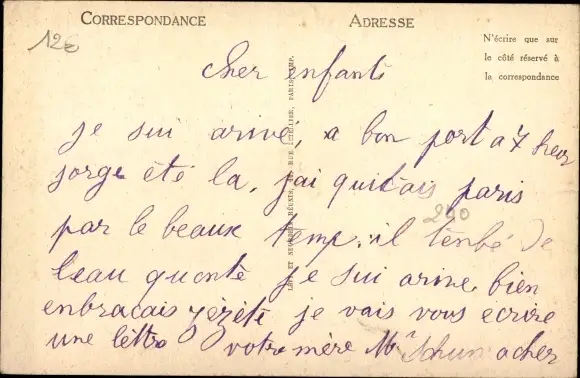 CORRESPONDANCE
ADRESSE
N'écrire que sur
le côté réservé à
la correspondance
12€
cher enfants
je sui arivé, a bon port a 7 heur
jorge été la, j'ai quitais paris
290
par le beaux temp. il tenbé de
leau quonte je sui arive. bien
enbracais je vais vous ecrire
une lettre votre mère Me Schumacher